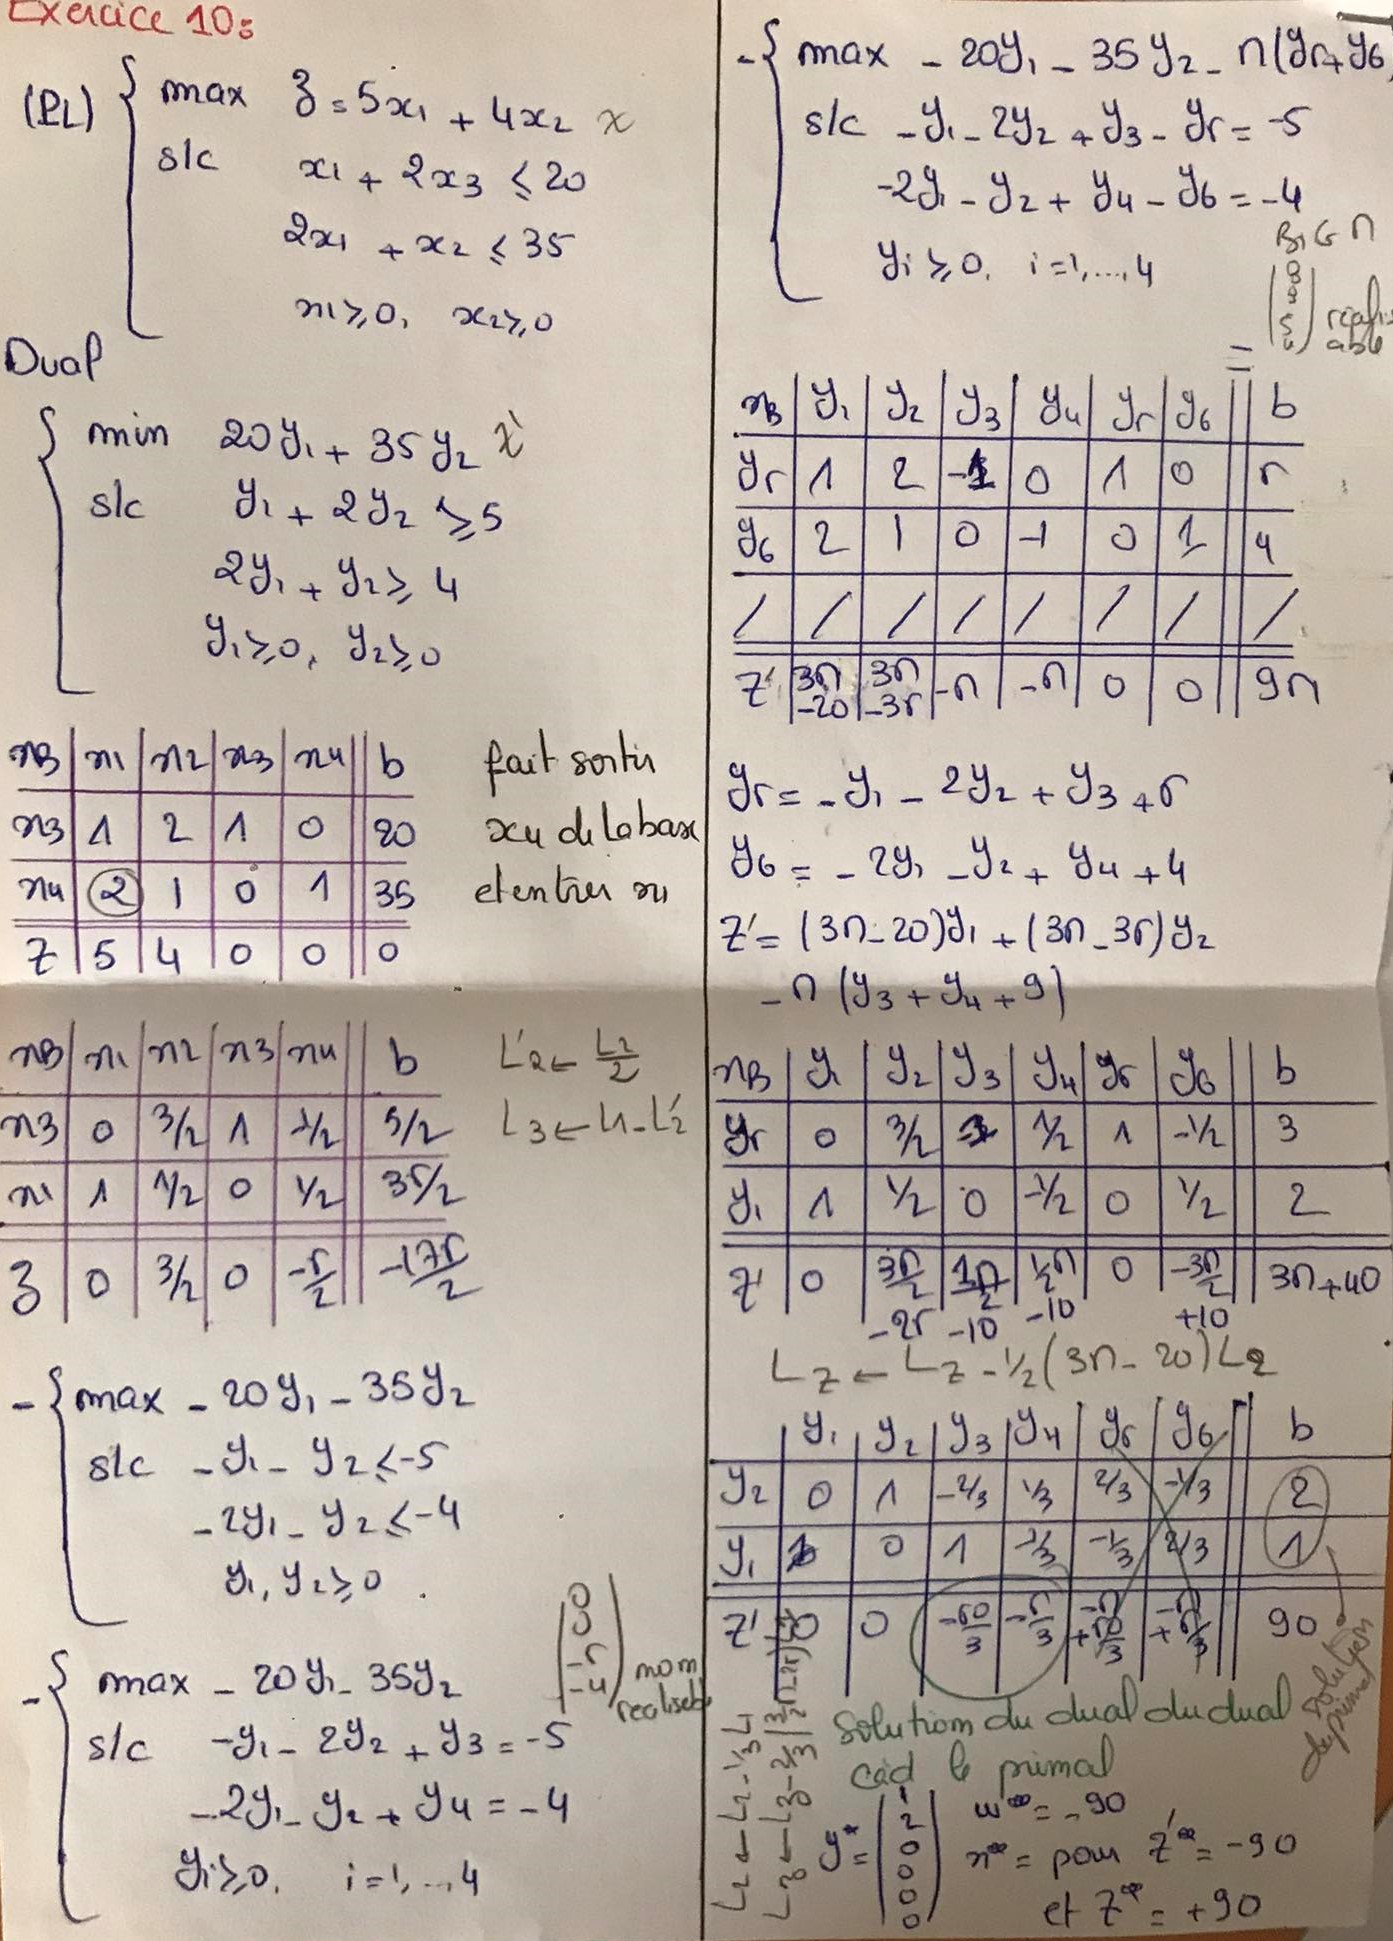 Exercice 10:
(PL) max z = 5x1 + 4x2 x
s/c x1 + 2x3 ≤ 20
2x1 + x2 ≤ 35
x1 ≥ 0, x2 ≥ 0
Dual
min 20y1 + 35y2 z'
s/c y1 + 2y2 ≥ 5
2y1 + y2 ≥ 4
y1 ≥ 0, y2 ≥ 0
xB | x1 | x2 | x3 | x4 || b
x3 | 1 | 2 | 1 | 0 || 20
x4 | 2 | 1 | 0 | 1 || 35
Z | 5 | 4 | 0 | 0 || 0
fait sortir
x4 de la base
et entrer x1
xB | x1 | x2 | x3 | x4 || b
x3 | 0 | 3/2 | 1 | -1/2 || 5/2
x1 | 1 | 1/2 | 0 | 1/2 || 35/2
z | 0 | 3/2 | 0 | -5/2 || -175/2
L'2 ← L2/2
L3 ← L1 - L'2
- { max - 20y1 - 35y2
s/c -y1 - y2 ≤ -5
-2y1 - y2 ≤ -4
y1, y2 ≥ 0
(0 0 -5 -4) non
realisable
- { max - 20y1 - 35y2
s/c -y1 - 2y2 + y3 = -5
-2y1 - y2 + y4 = -4
yi ≥ 0, i = 1, ..., 4
- { max - 20y1 - 35y2 - M(y5 + y6)
s/c -y1 - 2y2 + y3 - y5 = -5
-2y1 - y2 + y4 - y6 = -4
yi ≥ 0, i = 1, ..., 4
BIG M
réalis
able
xB | y1 | y2 | y3 | y4 | y5 | y6 || b
y5 | 1 | 2 | -1 | 0 | 1 | 0 || 5
y6 | 2 | 1 | 0 | -1 | 0 | 1 || 4
/ | / | / | / | / | / | / || /
Z' | 3M -20 | 3M -35 | -M | -M | 0 | 0 || 9M
y5 = -y1 - 2y2 + y3 + 5
y6 = -2y1 - y2 + y4 + 4
Z' = (3M - 20)y1 + (3M - 35)y2
- M (y3 + y4 + 9)
xB | y1 | y2 | y3 | y4 | y5 | y6 || b
y5 | 0 | 3/2 | -1 | 1/2 | 1 | -1/2 || 3
y1 | 1 | 1/2 | 0 | -1/2 | 0 | 1/2 || 2
Z' | 0 | 3M/2 -25 | 1M/2 -10 | 1/2M -10 | 0 | -3M/2 +10 || 3M + 40
LZ ← LZ - 1/2(3M - 20)L2
y1 | y2 | y3 | y4 | y5 | y6 || b
y2 | 0 | 1 | -2/3 | 1/3 | 2/3 | -1/3 || 2
y1 | 1 | 0 | 1 | -2/3 | -1/3 | 2/3 || 1
Z' | 0 | 0 | -50/3 | -5/3 | -M +50/3 | -M +5/3 || 90
solution
de primal
L2 ← L2 - 1/3 L1
solution du dual du dual
càd le primal
y* = (1 2 0 0 0 0)
w* = -90
x* = pour Z'* = -90
et Z* = +90